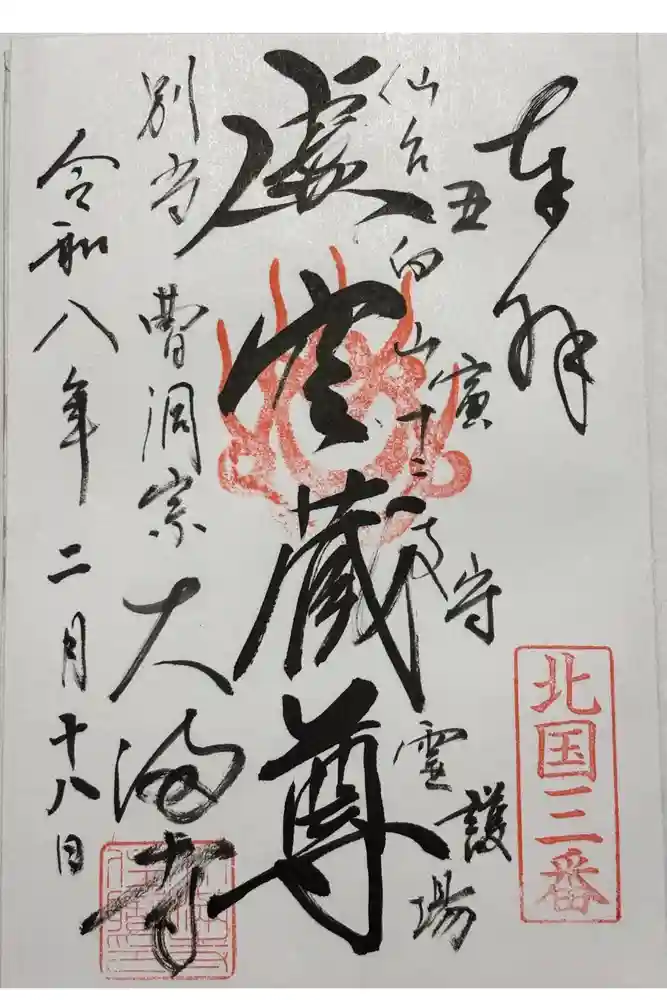 奉拝
北国三番
丑寅守護
仙台向山十二支霊場
虚空蔵尊
別当曹洞宗大満寺
令和八年二月十八日